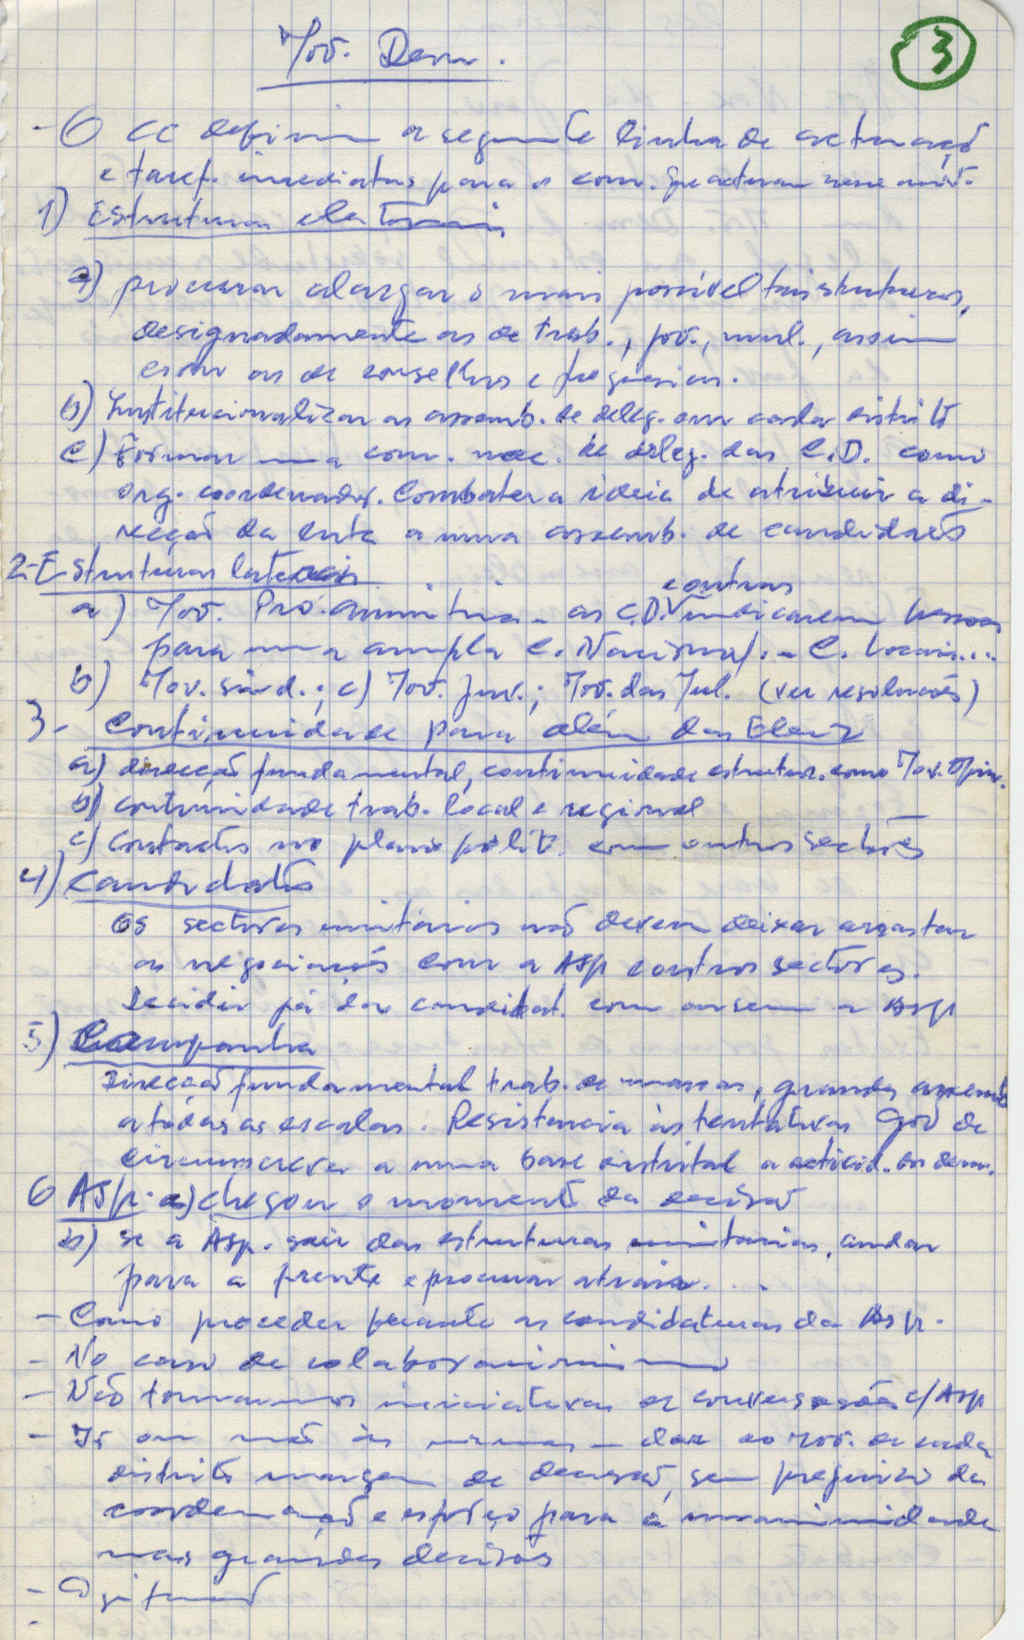 3
Mov. Dem.
- O CC definiu a seguinte linha de actuação
e taref. imediatas para os cam. que actuam nesse mov.
1) Estruturas eleitorais
a) procurar alargar o mais possível tais estruturas,
designadamente as de trab., juv., mul., assim
como as de conselhos e freguesias.
b) Institucionalizar as assemb. de deleg. em cada distrito
c) Formar uma com. nac. de deleg. das C.D. como
org. coordenador. Combater a ideia de atribuir a di-
recção da luta a uma assemb. de candidatos
2- Estruturas laterais
a) Mov. Pró-amnistia - as C.D. e outras indicarem pessoas
para uma ampla C. Nacional. - C. Locais...
b) Mov. sind.; c) Mov. juv.; Mov. das Mul. (ver resoluções)
3 - Continuidade para além das Eleiç
a) direcção fundamental, continuidade estrutur. como Mov. Opin.
b) continuidade trab. local e regional
c) Contactos no plano polit. com outros sectores
4) Candidatos
Os sectores unitários não devem deixar arrastar
as negociações com a ASP e outros sectores.
Decidir já dar candidat. com ou sem a ASP
5) Campanha
Direcção fundamental trab. de massas, grandes assemb
a todas as escalas. Resistência às tentativas Gov de
circunscrever a uma base distrital a activid. dos dem.
6 ASP. a) chegou o momento da decisão
b) se a Asp. sair das estruturas unitárias, andar
para a frente e procurar atrair. ...
- Como proceder perante as candidaturas da Asp.
- No caso de colaboracionismo
- Não tomarmos iniciativas de conversações c/ ASP
- Ir ou não às urnas - dar ao mov. de cada
distrito margem de decisão, sem prejuízo da
coordenação e esforço para a unanimidade
nas grandes decisões
- Agitação
-